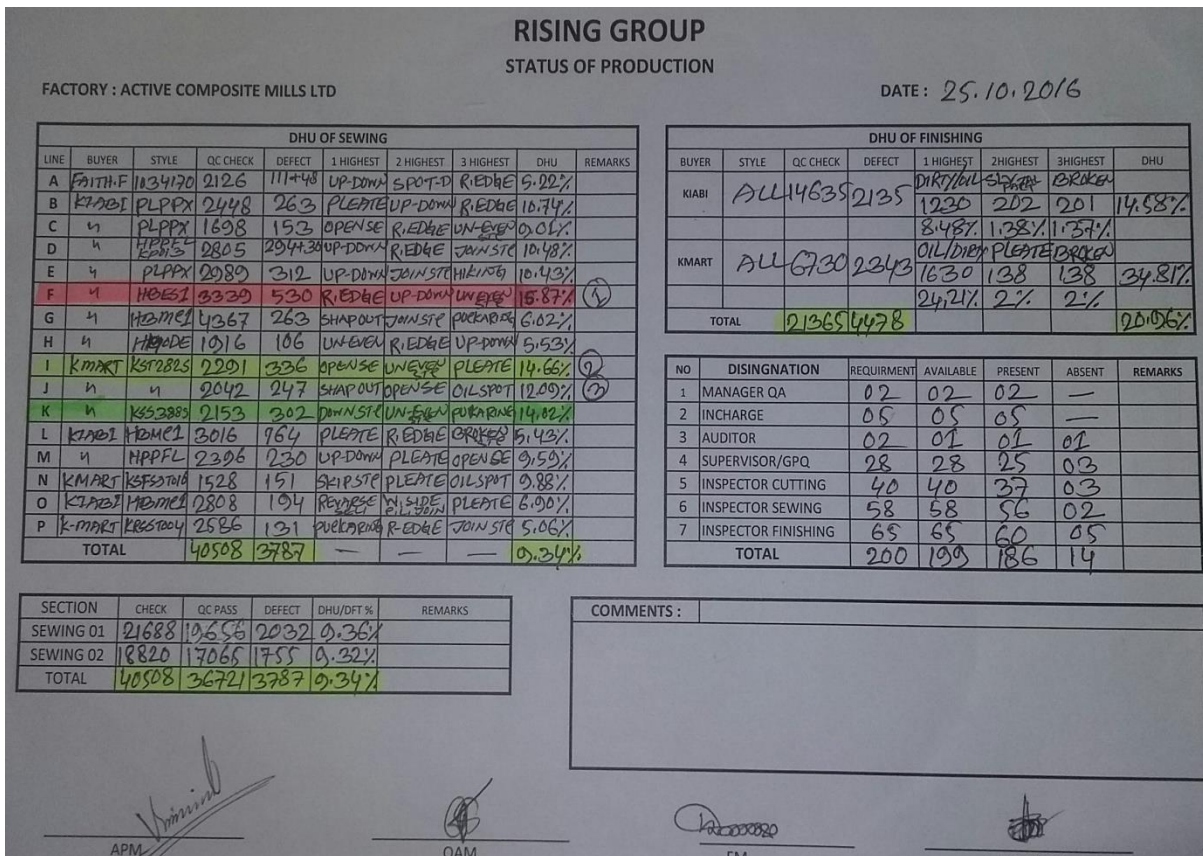 RISING GROUP
STATUS OF PRODUCTION
FACTORY : ACTIVE COMPOSITE MILLS LTD
DATE : 25.10.2016
DHU OF SEWING
LINE BUYER STYLE QC CHECK DEFECT 1 HIGHEST 2 HIGHEST 3 HIGHEST DHU REMARKS
A FAITH.F 1034170 2126 111+48 UP-DOWN SPOT-D R.EDGE 5.22%
B KIABI PLPPX 2448 263 PLEATE UP-DOWN R.EDGE 10.74%
C " PLPPX 1698 153 OPENSE R.EDGE UN-EVEN 9.01%
D " 2805 294+30 UP-DOWN R.EDGE JOINSTC 10.48%
E " PLPPX 2989 312 UP-DOWN JOINSTC HIKING 10.43%
F " HBES1 3339 530 R.EDGE UP-DOWN UNEVEN 15.87% 1
G " HBMC1 4367 263 SHAPOUT JOINSTC PUCKARING 6.02%
H " 1916 106 UNEVEN R.EDGE UP-DOWN 5.53%
I KMART KST2825 2291 336 OPENSE UNEVEN PLEATE 14.66% 2
J " " 2042 247 SHAPOUT OPENSE OILSPOT 12.09% 3
K " KSS3885 2153 302 DOWNSTC UN-EVEN PUKARING 14.02%
L KIABI HBMC1 3016 164 PLEATE R.EDGE BROKEN 5.43%
M " HPPFL 2396 230 UP-DOWN PLEATE OPENSE 9.59%
N KMART 1528 151 SKIPSTC PLEATE OILSPOT 9.88%
O KIABI HBMC1 2808 194 REVARSE W.SIDE PLEATE 6.90%
P K-MART KRSST004 2586 131 PUCKARING R-EDGE JOIN STC 5.06%
TOTAL 40508 3787 — — — 9.34%
DHU OF FINISHING
BUYER STYLE QC CHECK DEFECT 1 HIGHEST 2HIGHEST 3HIGHEST DHU
DIRTY/OIL BROKEN
KIABI ALL 14635 2135 1230 202 201 14.58%
8.48% 1.38% 1.37%
OIL/DIRTY PLEATE BROKEN
KMART ALL 6730 2343 1630 138 138 34.81%
24.21% 2% 2%
TOTAL 21365 4478 20.96%
NO DISINGNATION REQUIRMENT AVAILABLE PRESENT ABSENT REMARKS
1 MANAGER QA 02 02 02 —
2 INCHARGE 05 05 05 —
3 AUDITOR 02 01 01 01
4 SUPERVISOR/GPQ 28 28 25 03
5 INSPECTOR CUTTING 40 40 37 03
6 INSPECTOR SEWING 58 58 56 02
7 INSPECTOR FINISHING 65 65 60 05
TOTAL 200 199 186 14
SECTION CHECK QC PASS DEFECT DHU/DFT % REMARKS
SEWING 01 21688 19656 2032 9.36%
SEWING 02 18820 17065 1755 9.32%
TOTAL 40508 36721 3787 9.34%
COMMENTS :
APM
QAM